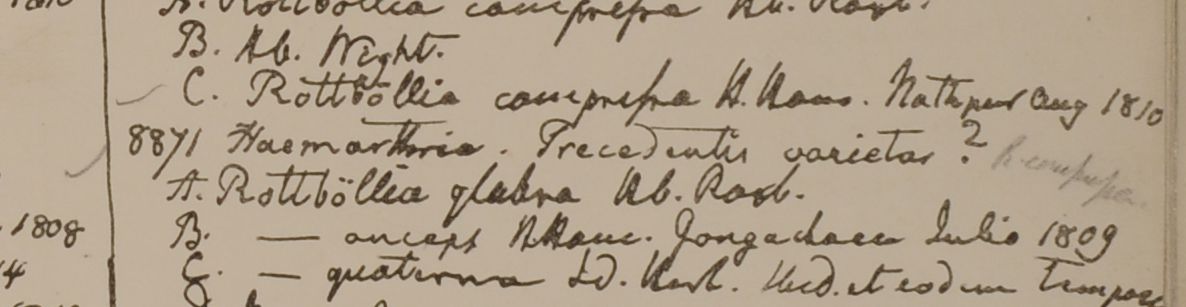 A. Rottböllia compressa Hb. Roxb.
B. Hb. Wight.
C. Rottböllia compressa H. Ham. Nathpur Aug 1810
8871 Haemarthria. Precedentis varietas? R. compressa
A. Rottböllia glabra Hb. Roxb.
1808 B. — anceps H Ham. Gongachara Julio 1809
4 C. — quaterna Id. Herb. et eodem tempore